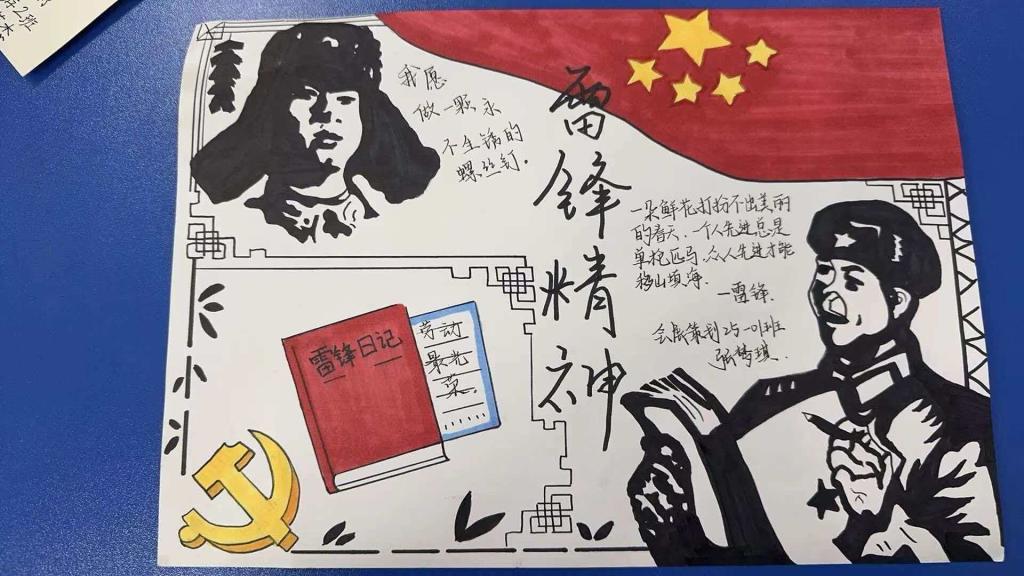 我愿
做一颗永
不生锈的
螺丝钉.
雷锋精神
一朵鲜花打扮不出美丽
的春天.一个人先进总是
单枪匹马,众人先进才能
移山填海.
—雷锋.
会展策划25-01班
雷锋日记
劳动
最光
荣.